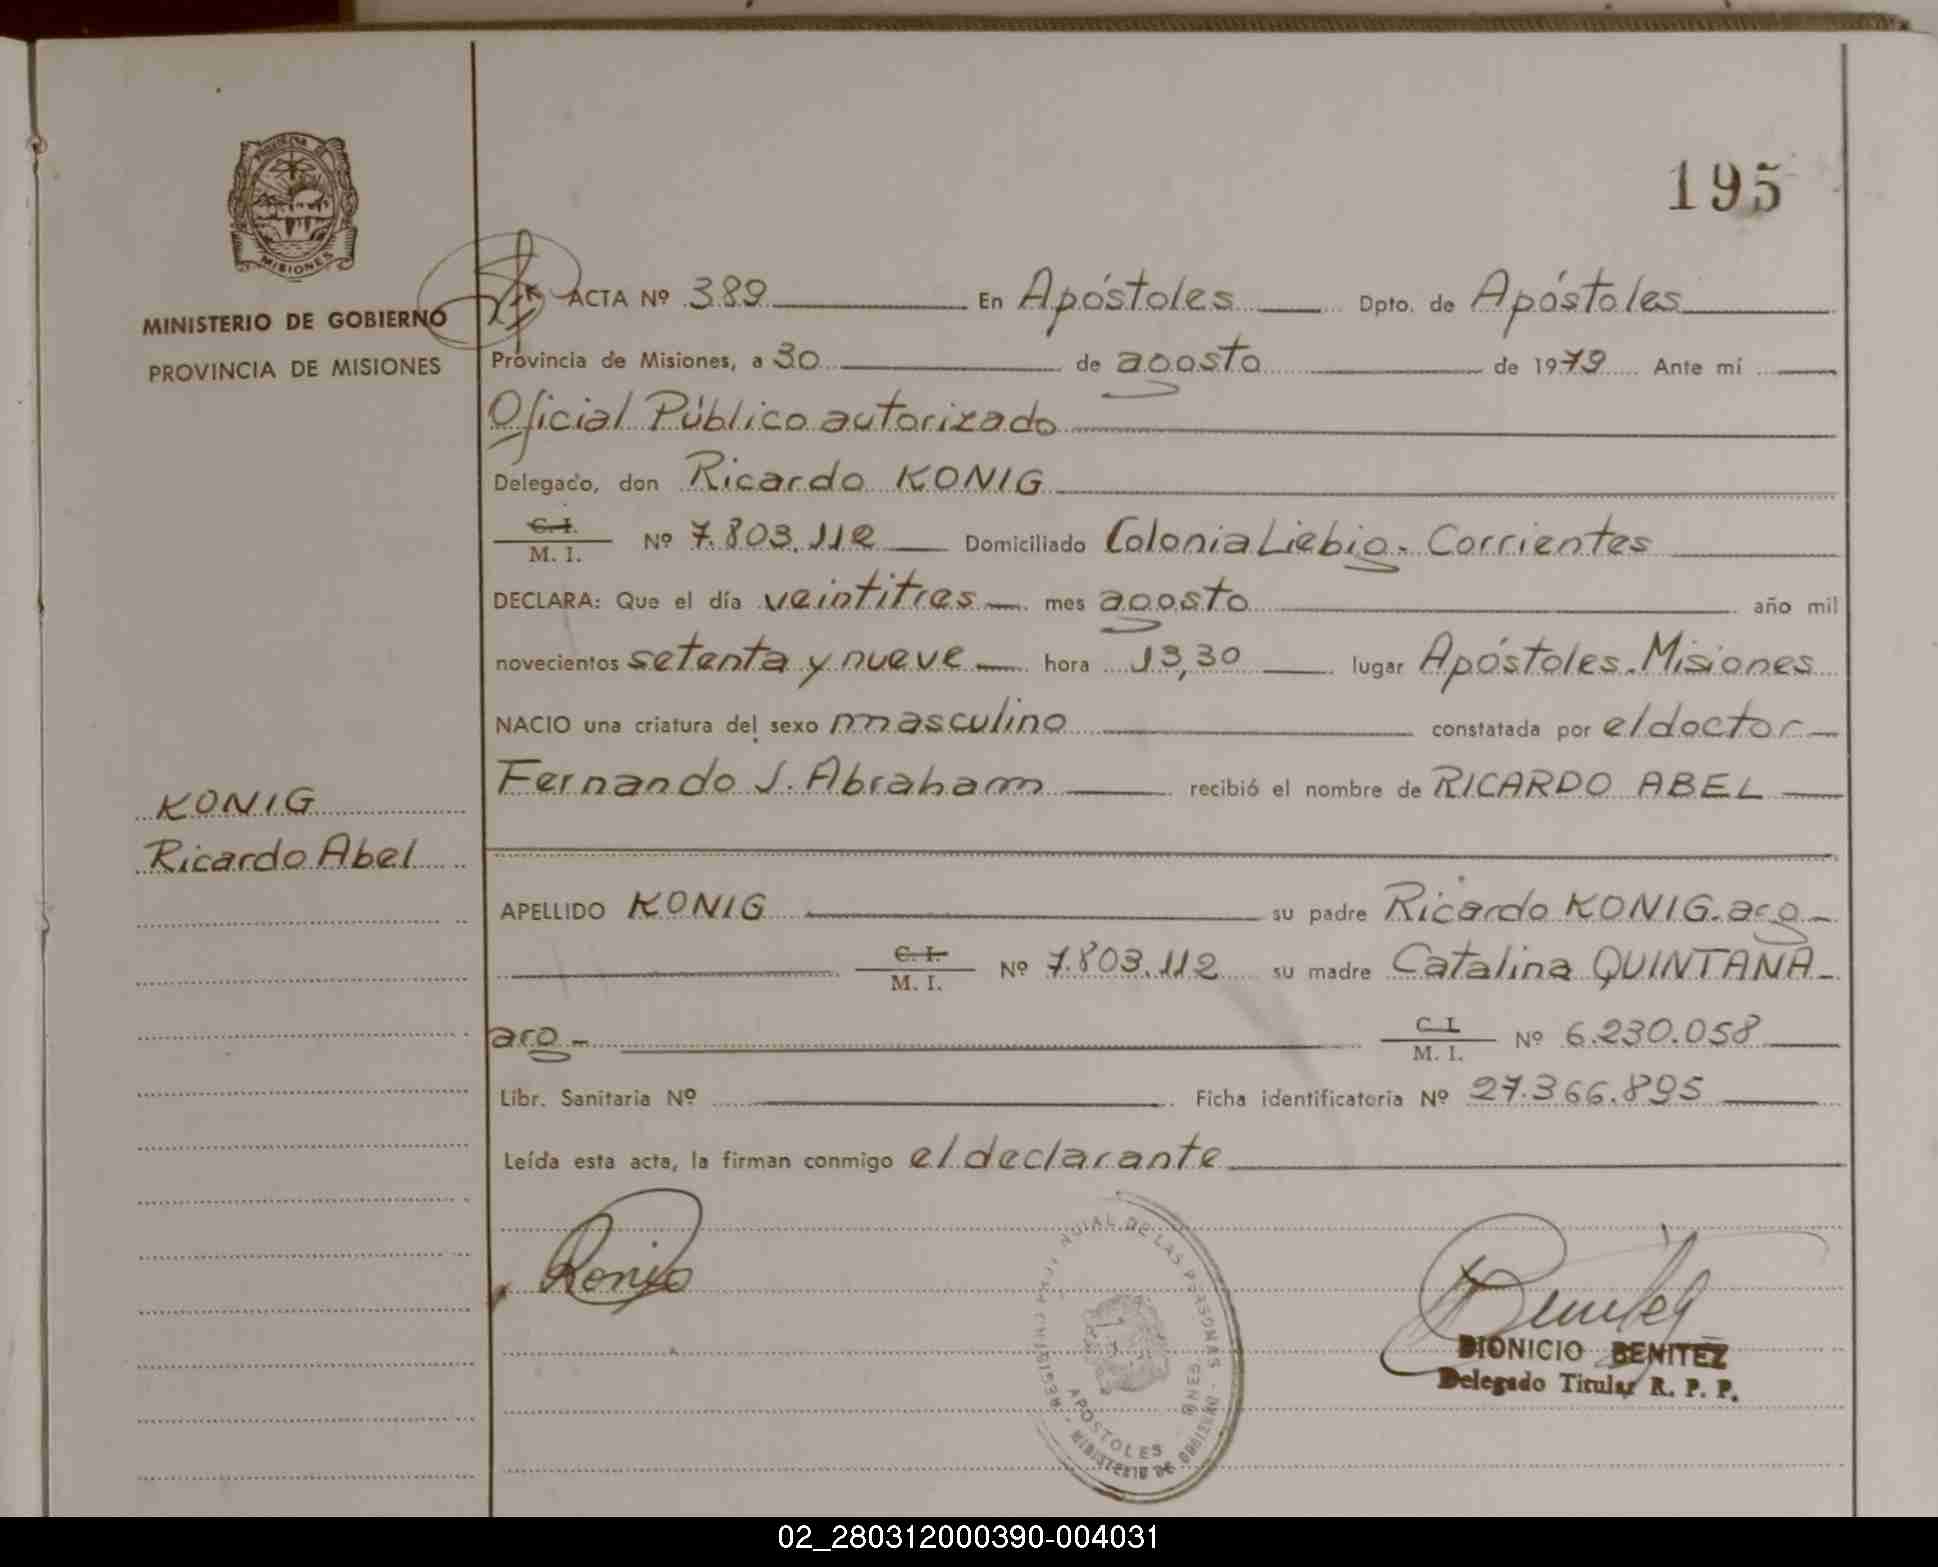 195
PROVINCIA DE
MISIONES
MINISTERIO DE GOBIERNO
PROVINCIA DE MISIONES
KONIG
Ricardo Abel
ACTA Nº 389 En Apóstoles Dpto. de Apóstoles
Provincia de Misiones, a 30 de agosto de 1979 Ante mí
Oficial Público autorizado
Delegado, don Ricardo KONIG
C. I.
M. I. Nº 7.803.112 Domiciliado Colonia Liebig. Corrientes
DECLARA: Que el día veintitres mes agosto año mil
novecientos setenta y nueve hora 13,30 lugar Apóstoles. Misiones
NACIO una criatura del sexo masculino constatada por el doctor
Fernando J. Abraham recibió el nombre de RICARDO ABEL
APELLIDO KONIG su padre Ricardo KONIG. arg
C. I.
M. I. Nº 7.803.112 su madre Catalina QUINTANA
arg - C. I.
M. I. Nº 6.230.058
Libr. Sanitaria Nº Ficha identificatoria Nº 27.366.895
Leída esta acta, la firman conmigo el declarante
Konig
Benitez
DIONICIO BENITEZ
Delegado Titular R. P. P.
DE LAS PERSONAS
APOSTOLES
MINISTERIO DE GOBIERNO
02_280312000390-004031